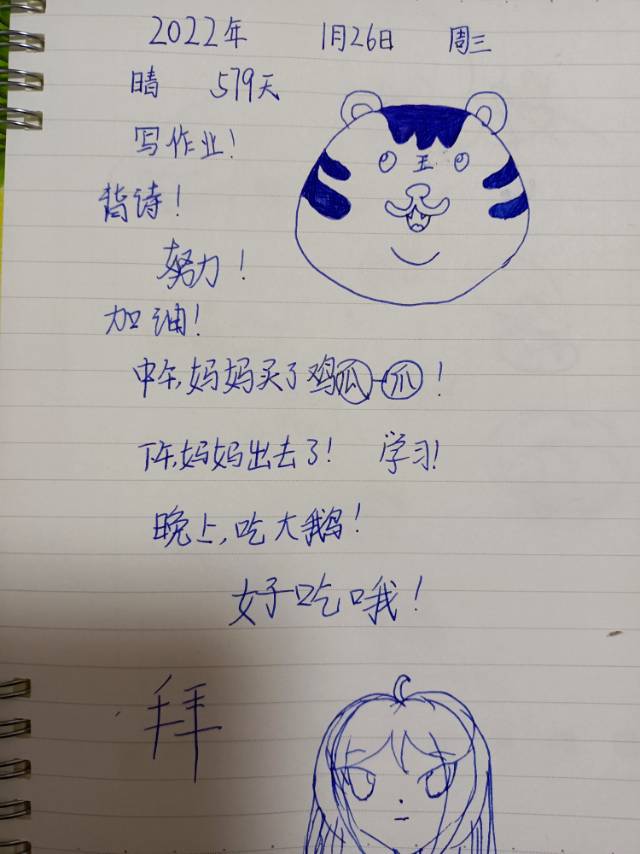 2022年 1月26日 周三
晴 579天
写作业！
背诗！
努力！
加油！
王
中午，妈妈买了鸡瓜-爪！
下午，妈妈出去了！ 学习！
晚上，吃大鹅！
好吃哦！
拜